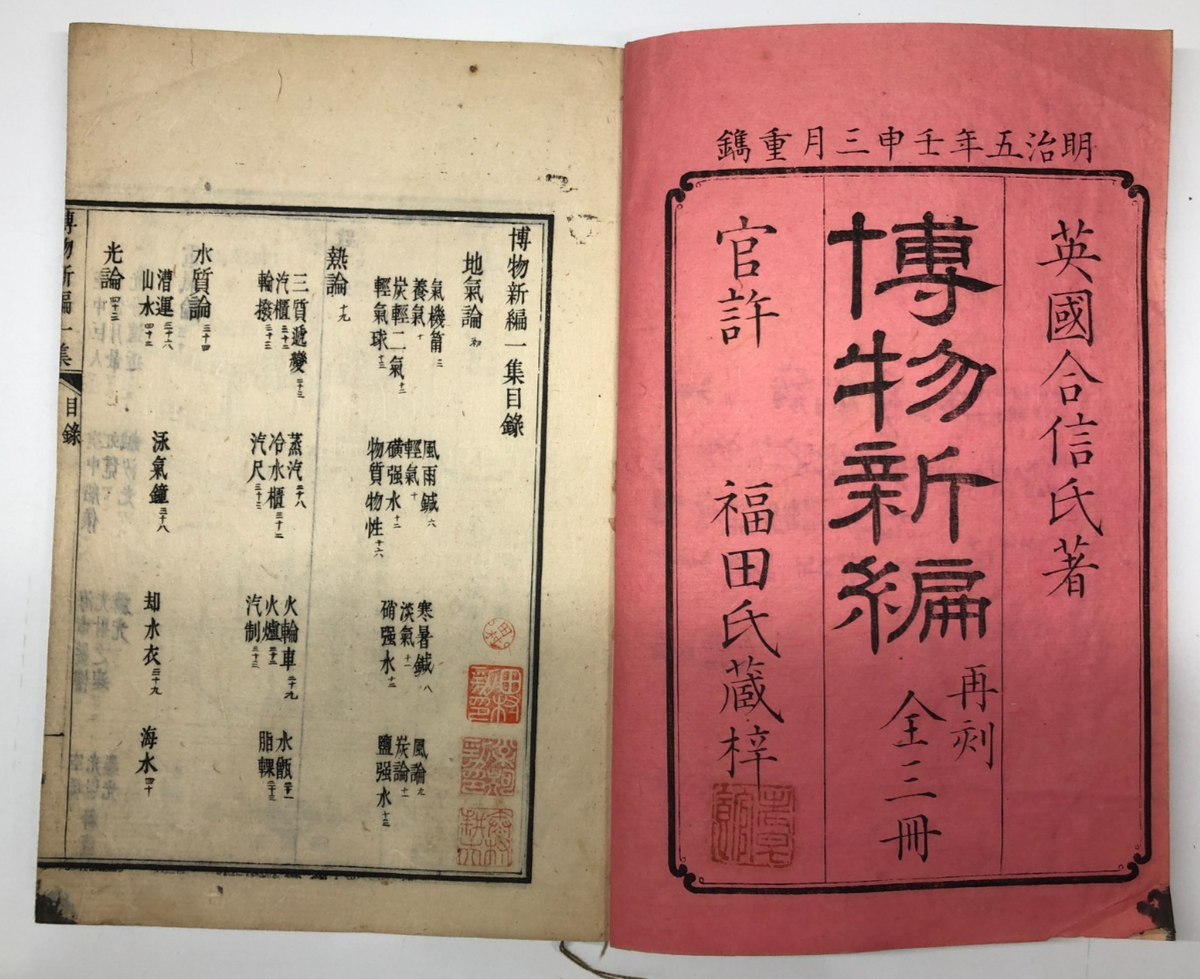 明治五年壬申三月重鐫
英國合信氏著
博物新編
再刻
全三冊
官許
福田氏蔵梓
博物新編一集目錄
地氣論 初
氣機筩 三
風雨鍼 六
寒暑鍼 八
風論 九
養氣 十
輕氣 十
淡氣 十一
炭論 十一
炭輕二氣 十二
磺强水 十二
硝强水 十三
鹽强水 十三
輕氣球 十三
物質物性 十六
熱論 十九
三質遞變 二十三
蒸汽 二十八
火輪車 二十九
水甑 三十一
汽櫃 三十二
冷水櫃 三十二
火爐 三十二
脂輠 三十三
輪撥 三十三
汽尺 三十三
汽制 三十三
水質論 三十四
漕運 三十六
泳氣鐘 三十八
却水衣 三十九
海水 四十
山水 四十二
光論 四十三
博物新編一集
目錄
一